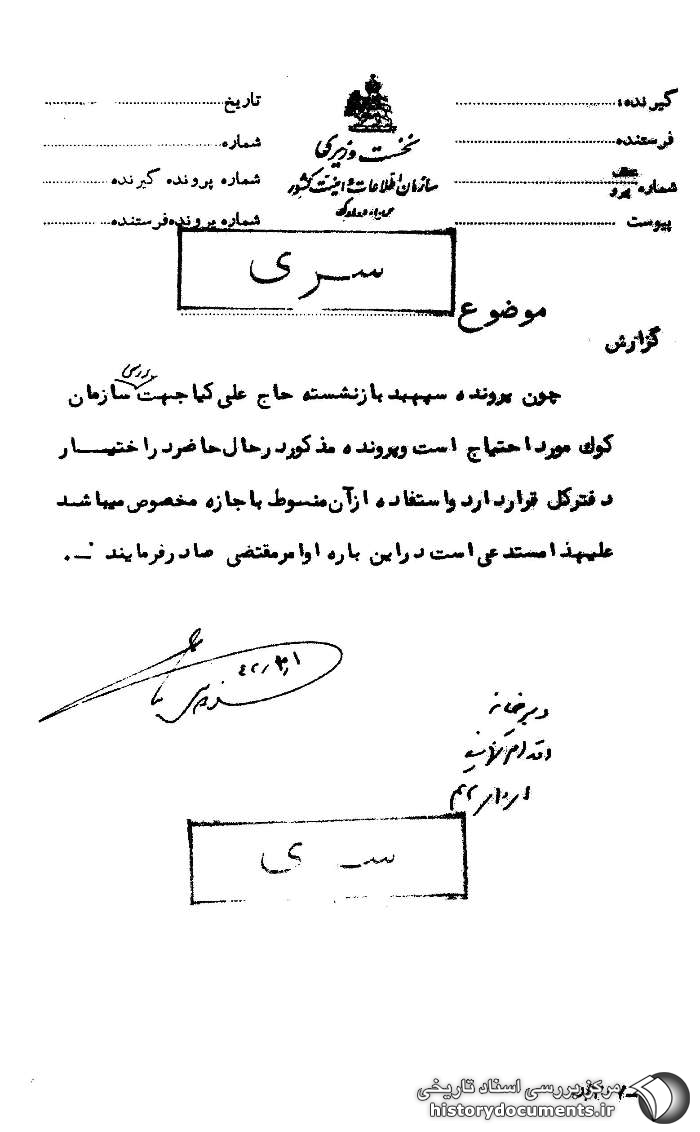 گیرنده:
فرستنده
شماره پیرو
پیوست
نخست وزیری
سازمان اطلاعات و امنیت کشور
تاریخ
شماره
شماره پرونده گیرنده
شماره پرونده فرستنده
سری
موضوع
گزارش
چون پرونده سپهبد بازنشسته حاج علی کیا جهت بررسی سازمان
کوک مورد احتیاج است و پرونده مذکور در حال حاضر در اختیار
دفتر کل قرار دارد و استفاده از آن منوط با جازه مخصوص میباشد
علیهذا مستدعی است در این باره اوامر مقتضی صادر فرمایند .
دبیرخانه
اقدام
سری
مرکز بررسی اسناد تاریخی
historydocuments.ir